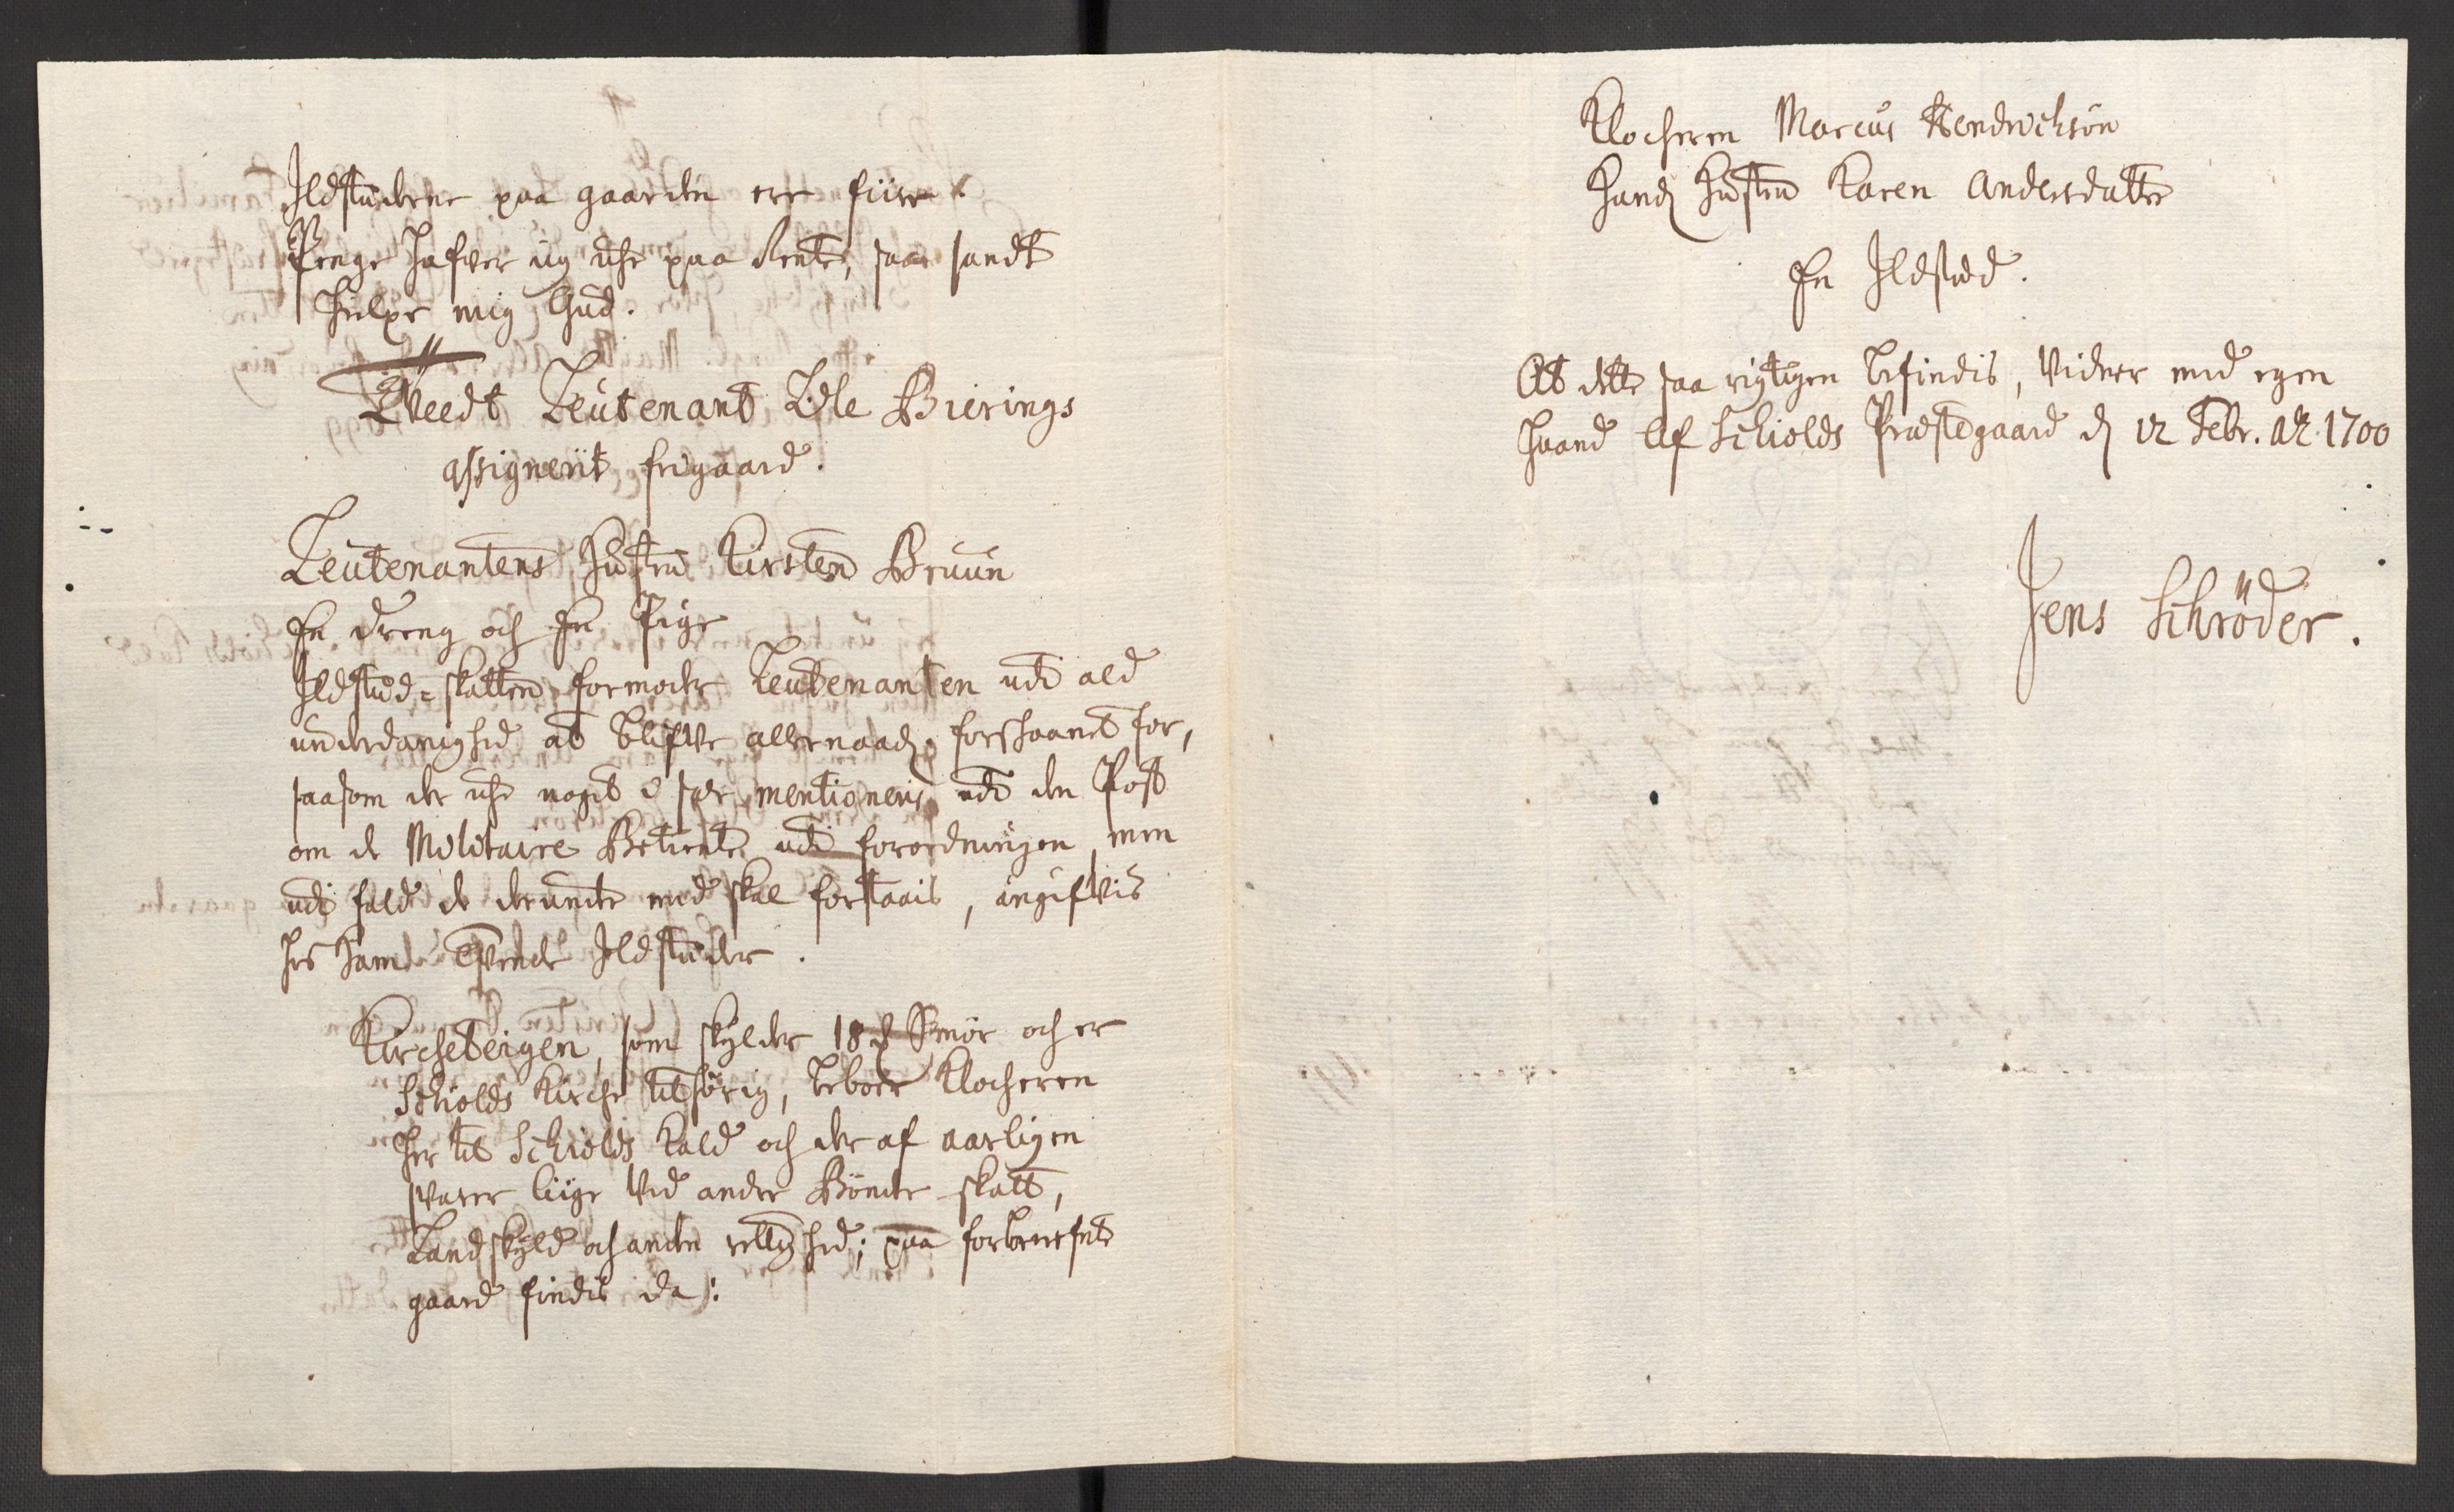 Ildstæderne paa gaarden ere fiire.
Penge hafver iig iche paa Rente, saa sandt
hielpe mig Gud.
Tveedt Leutenant Bierings
assignerit frigaard.
Leutenantens Hustru Kirsten Bruun
En dreng och En Pige
Ildstæd-skatten formoder Leutenanten udi ald
underdanighed at blifve allernaad. forskaanet for,
saasom der iche noget i sær mentioneris udi den Post
om de Militaire Betiente udi forordningen, men
udi fald de derunder med skal forstaais, angifvis
hos ham Tvende Ildstæder.
Kircheteigen, som skylder 18 Smör och er
Schiolds Kirche tilhörig, beboer Klocheren
her til Schiolds Kald och der af aarligen
svarer liige ved andre Bönder skatt,
Landskyld och anden rettighed; paa forbenefnte
gaard findis da:
Klocheren Marcus Hendrichsön
Hands Hustru Karen Andersdatter
En Ildstæd.
At dette saa rigtigen befindis, vidner med egen
haand Af Schiolds Præstegaard d 12 Febr. Aō. 1700
Jens Schröder.